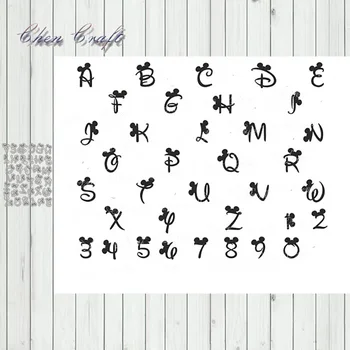 Chen Craft
A B C D E
F G H I
J K L M N
O P Q R
S T U V W
X Y Z 1 2
3 4 5 6 7 8 9 0